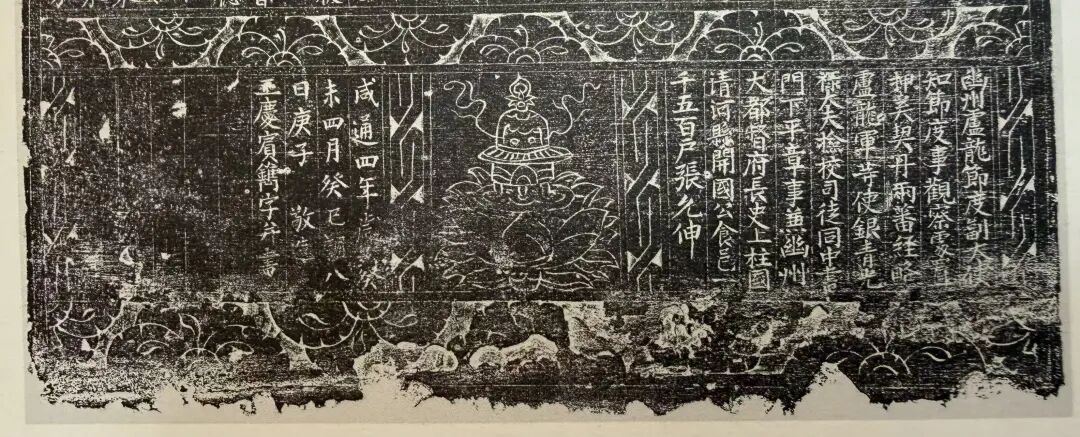 幽州盧龍節度副大使
知節度事觀察處置
押奚契丹兩蕃經略
盧龍軍等使銀青光
祿大夫檢校司徒同中書
門下平章事兼幽州
大都督府長史上柱國
清河縣開國公食邑一
千五百戶張允伸
咸通四年歲次癸
未四月癸巳朔八
日庚子 敬造
王慶賓鐫字并書